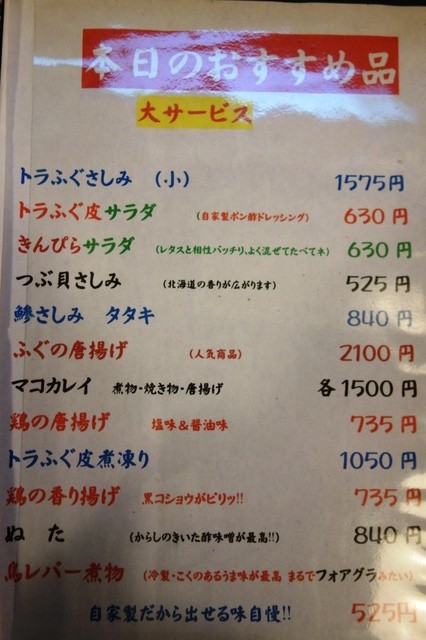 本日のおすすめ品
大サービス
トラふぐさしみ (小) 1575円
トラふぐ皮サラダ (自家製ポン酢ドレッシング) 630円
きんぴらサラダ (レタスと相性バッチリ、よく混ぜてたべてネ) 630円
つぶ貝さしみ (北海道の香りが広がります) 525円
鰺さしみ タタキ 840円
ふぐの唐揚げ (人気商品) 2100円
マコカレイ 煮物・焼き物・唐揚げ 各1500円
鶏の唐揚げ 塩味&醤油味 735円
トラふぐ皮煮凍り 1050円
鶏の香り揚げ 黒コショウがピリッ!! 735円
ぬ た (からしのきいた酢味噌が最高!!) 840円
鳥レバー煮物 (冷製・こくのあるうま味が最高 まるでフォアグラみたい)
自家製だから出せる味自慢!! 525円